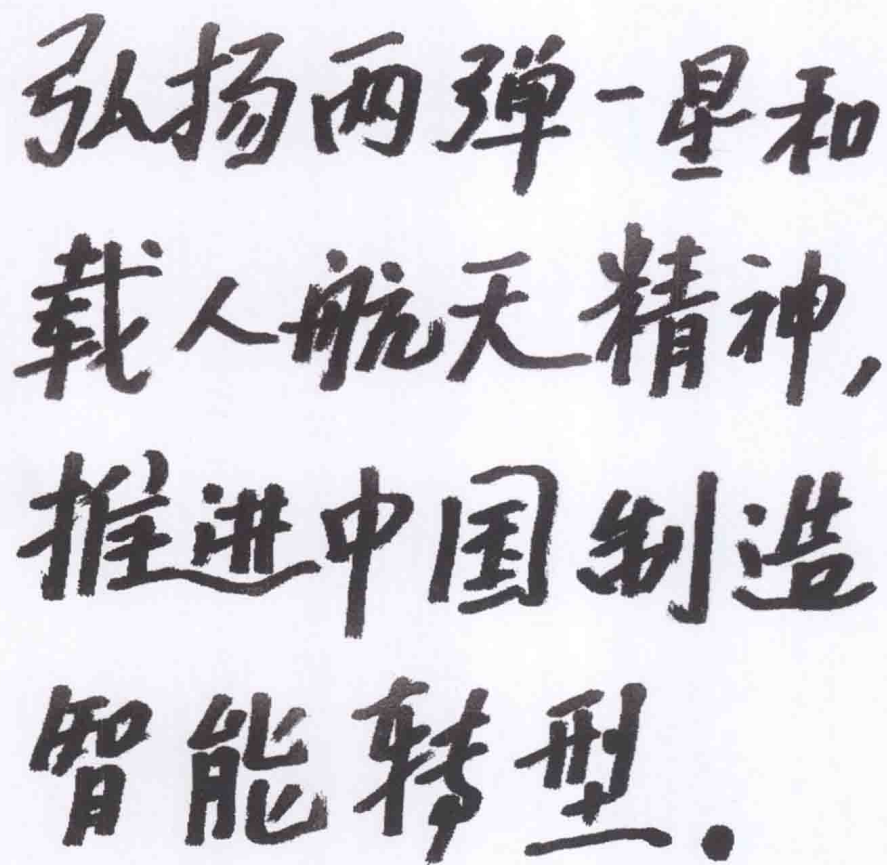 弘扬两弹一星和
载人航天精神,
推进中国制造
智能转型.